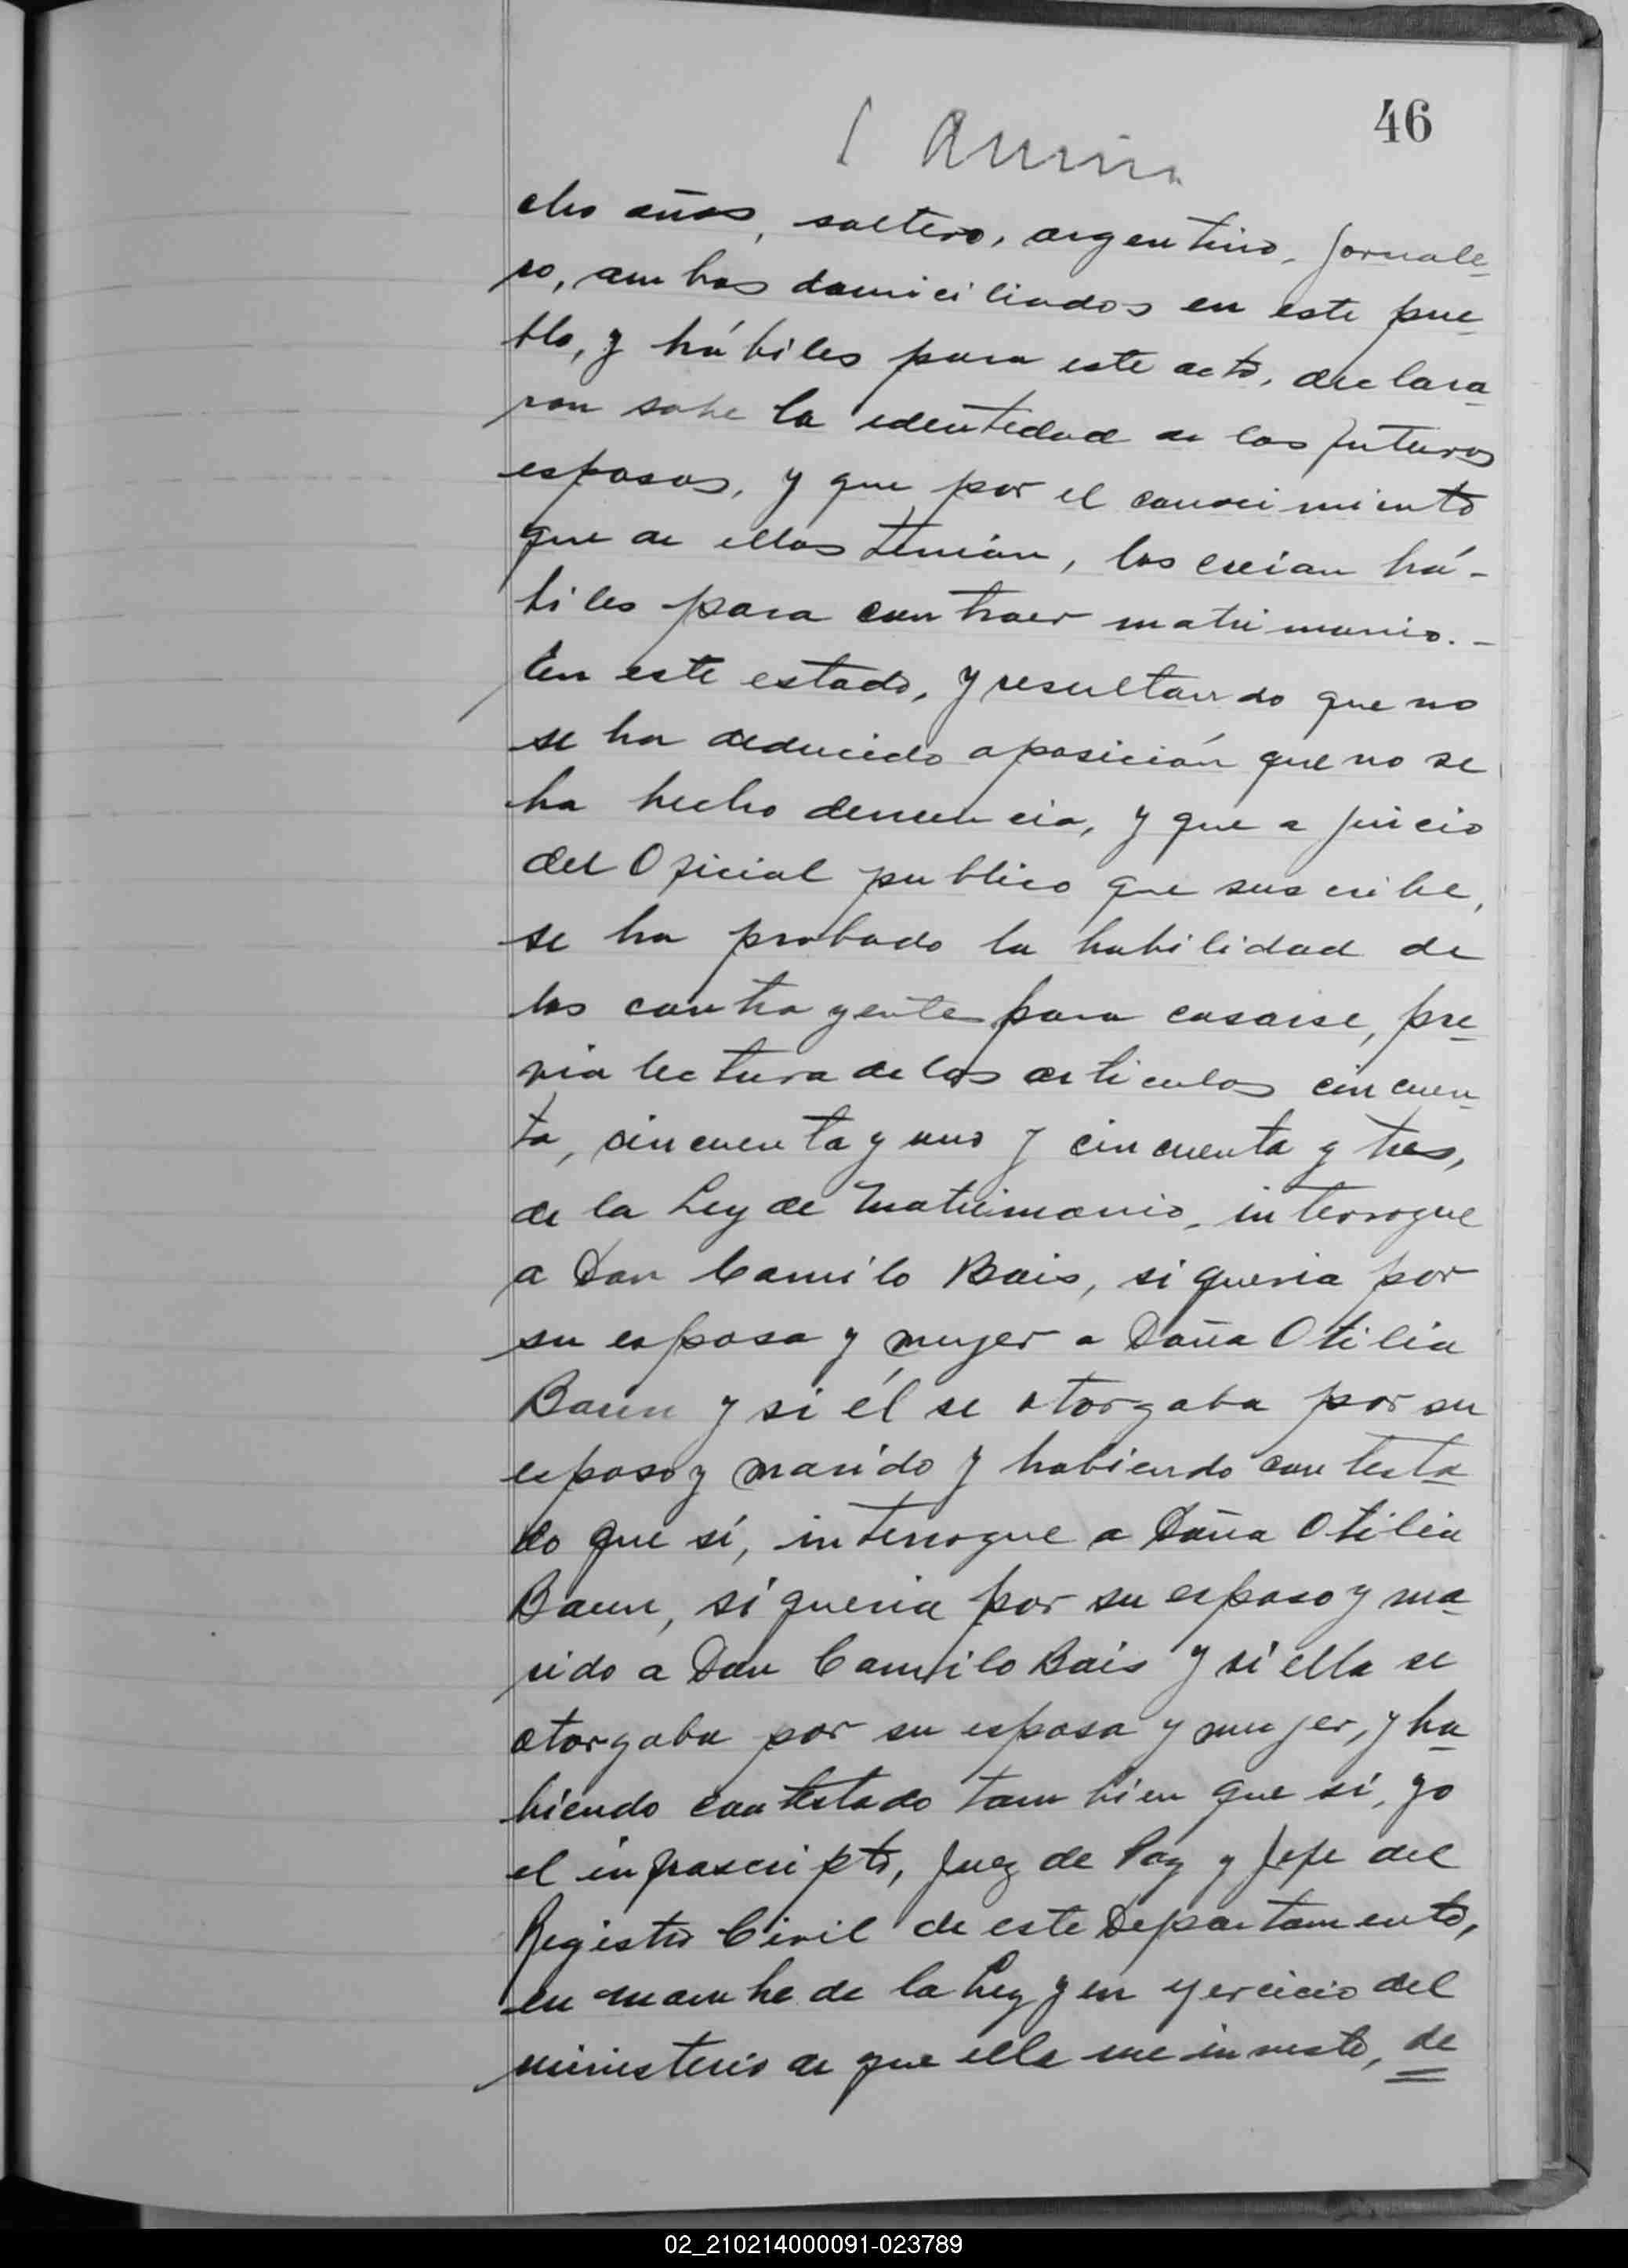 46
cho años, soltero, argentino, jornale-
ro, ambos domiciliados en este pue-
blo, y hábiles para este acto, declara-
ron sobre la identidad de los futuros
esposos, y que por el conocimiento
que de ellos tenían, los creian há-
biles para contraer matrimonio.-
En este estado, y resultando que no
se ha deducido oposición que no se
ha hecho denuncia, y que a juicio
del Oficial publico que suscribe,
se ha probado la habilidad de
los contrayentes para casarse, pre-
via lectura de los articulos cincuen-
ta, cincuenta y uno y cincuenta y tres,
de la Ley de Matrimonio, interrogue
a Don Camilo Bais, si queria por
su esposa y mujer a Doña Otilia
Baun y si él se otorgaba por su
esposo y marido y habiendo contesta-
do que sí, interrogue a Doña Otilia
Baun, si queria por su esposo y ma-
rido a Don Camilo Bais y si ella se
otorgaba por su esposa y mujer, y ha-
biendo contestado tambien que sí, yo
el infrascripto, Juez de Paz y Jefe del
Registro Civil de este Departamento,
en nombre de la Ley y en ejercicio del
ministerio de que ella me inviste, de
02_210214000091-023789